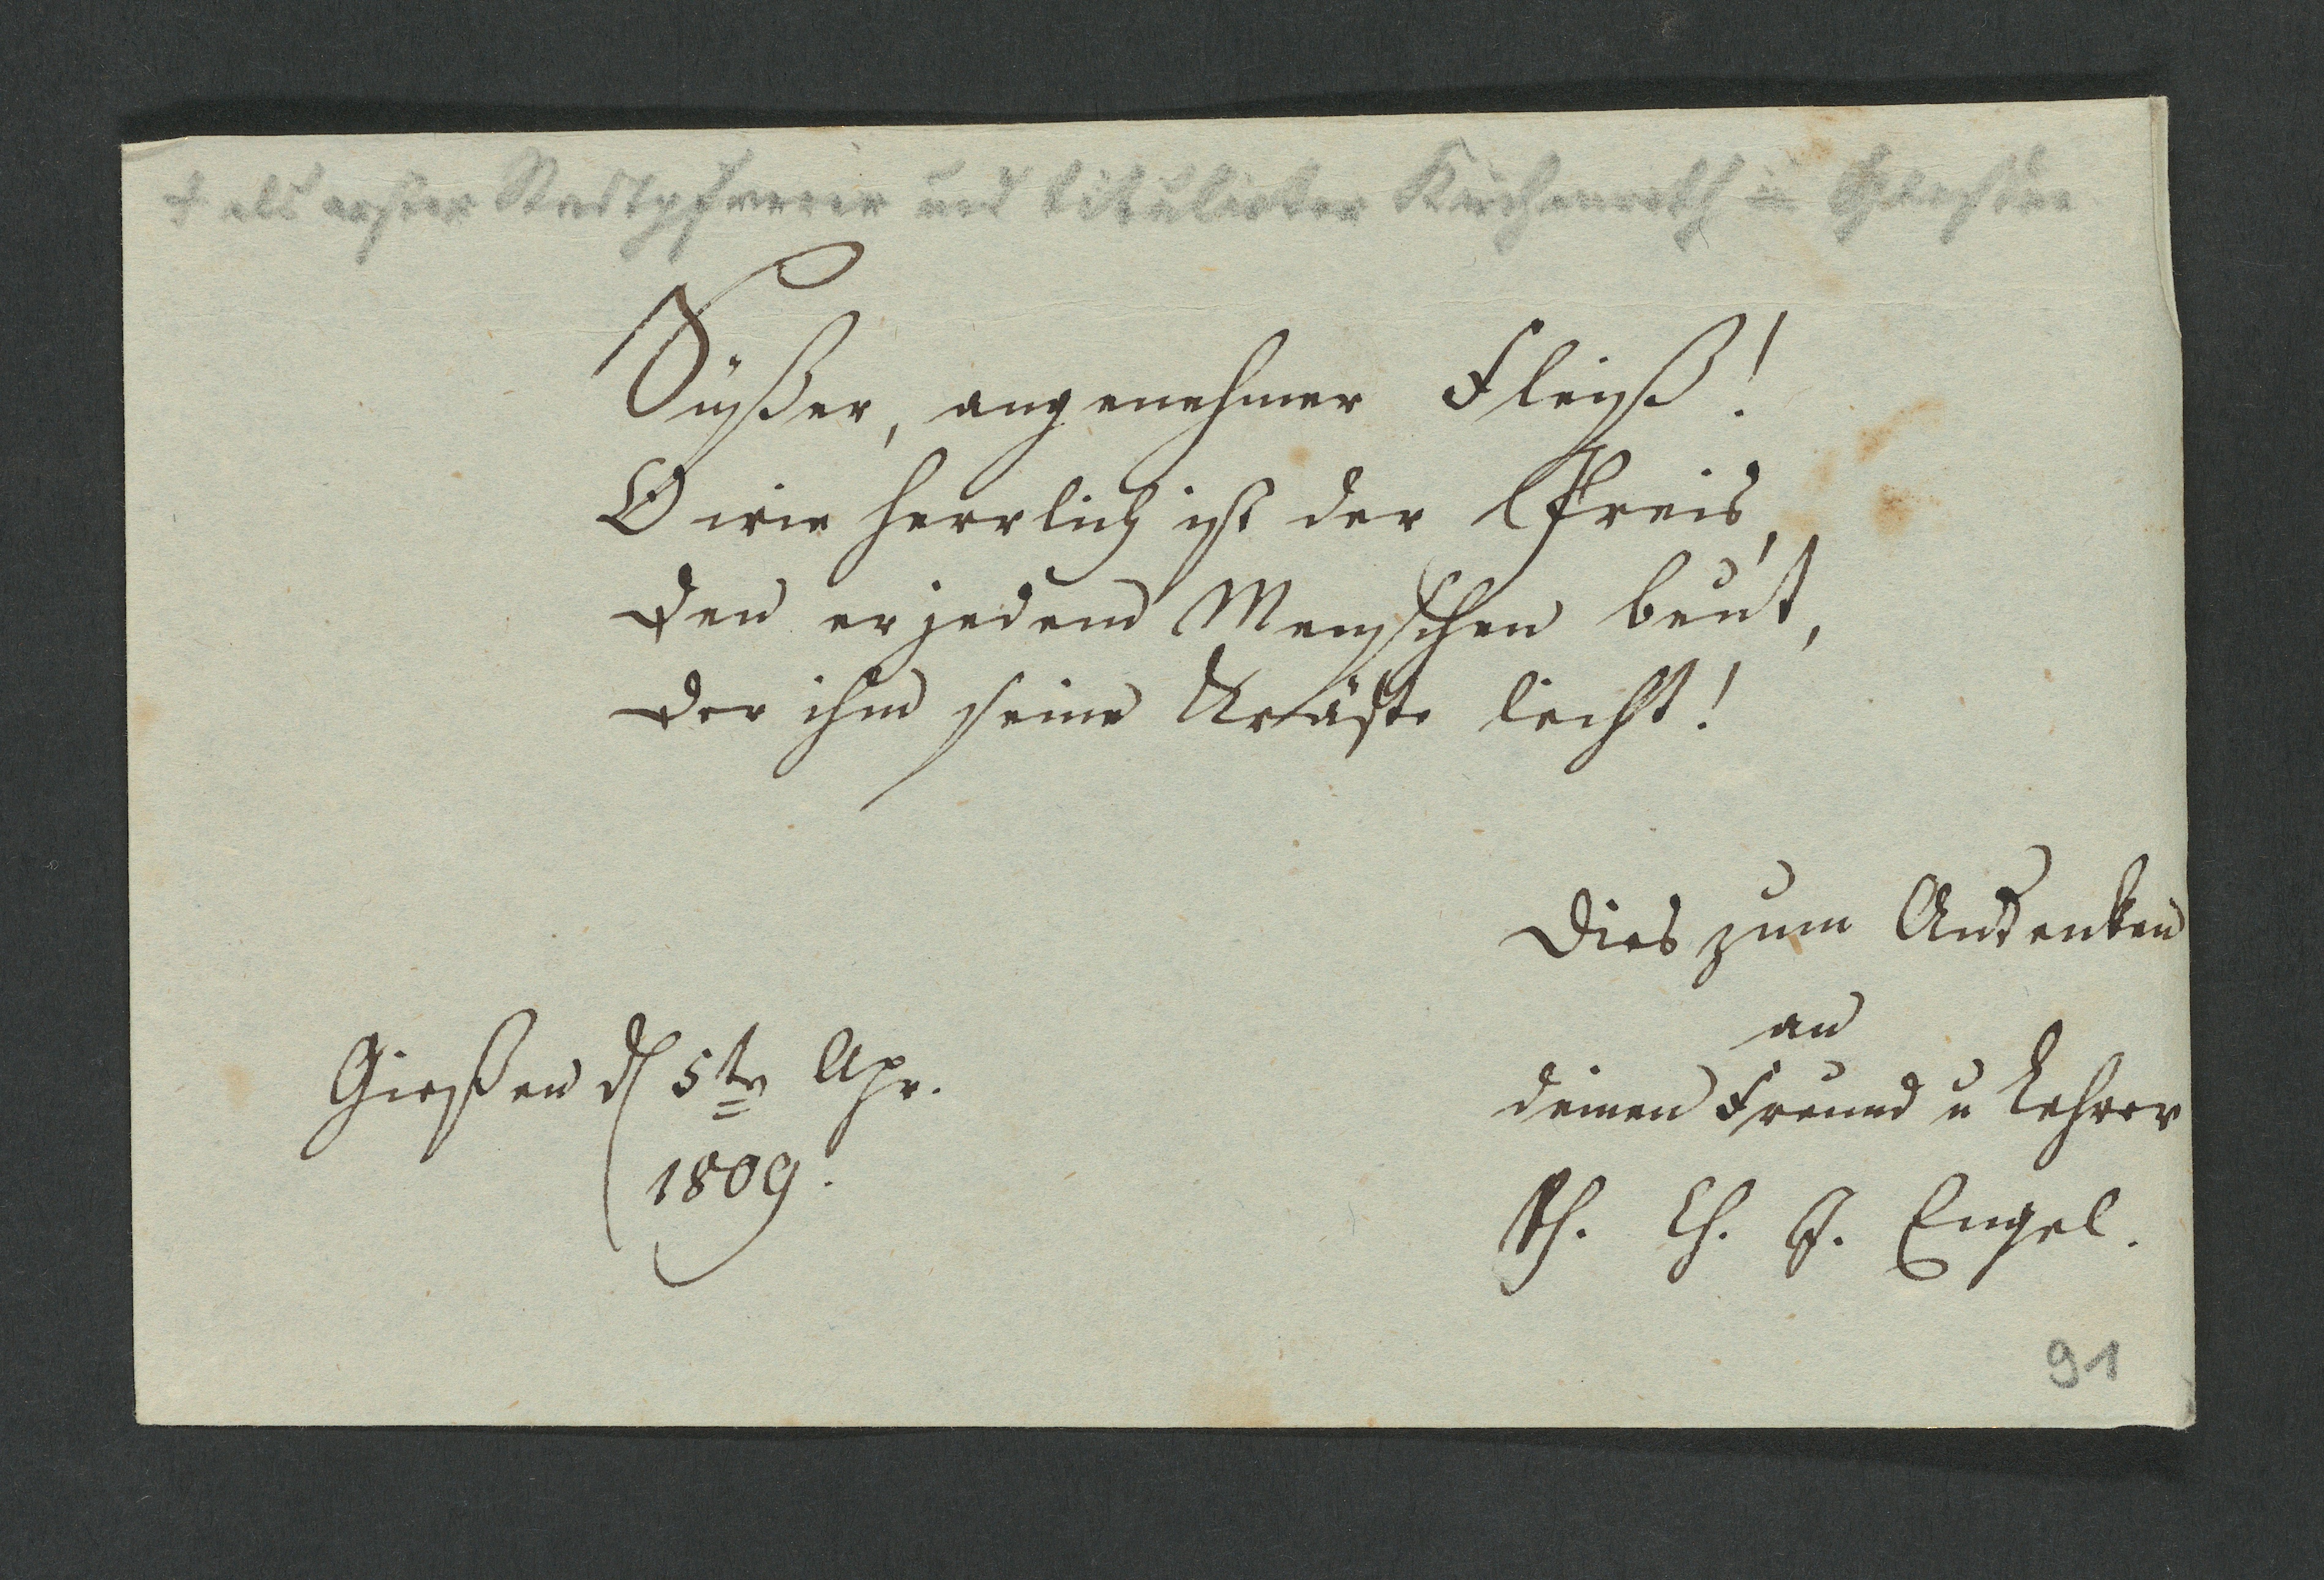 † als erster Stadtpfarrer und titulirter Kirchenrath in
Süßer, angenehmer Fleiß!
O wie herrlich ist der Preis,
Den er jedem Menschen beut,
Der ihm seine Kräfte leiht!
Dies zum Andenken
an
deinen Freund u Lehrer
Ph. Ch. J. Engel.
Gießen d 5te Apr.
1809.
91